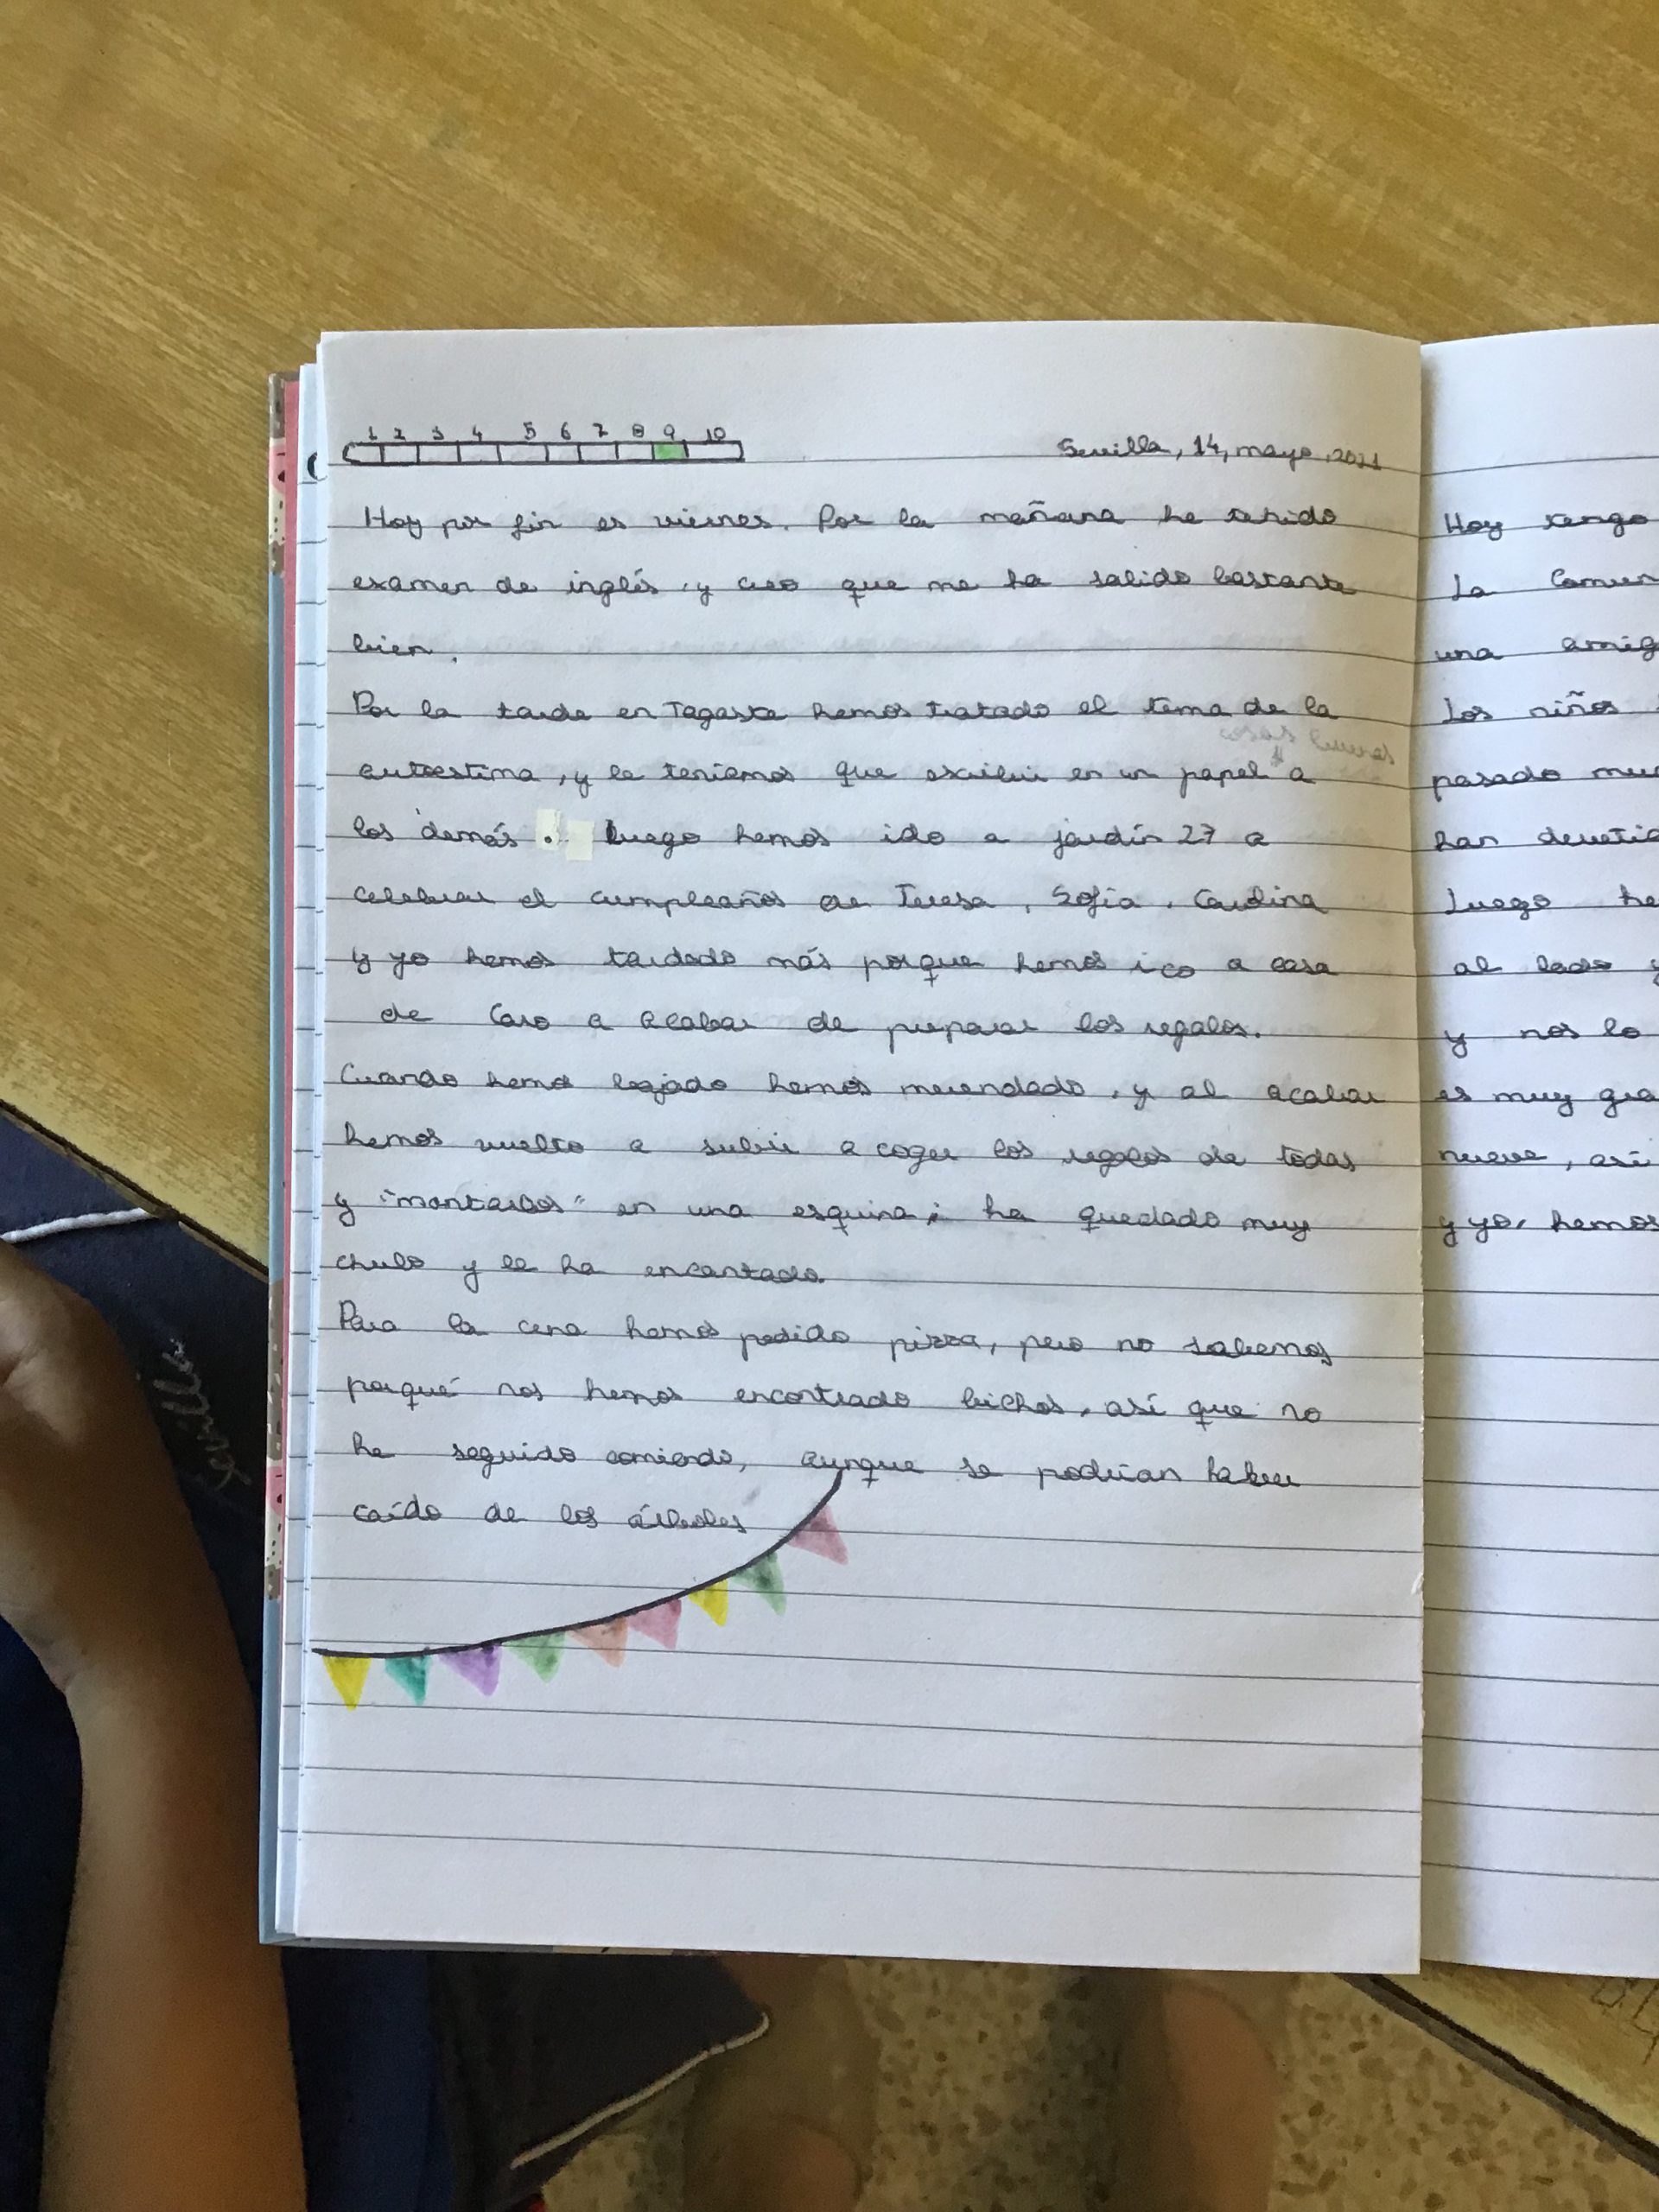 1 2 3 4 5 6 7 8 9 10
Sevilla, 14, mayo, 2021
Hoy por fin es viernes. Por la mañana he tenido
examen de inglés, y creo que me ha salido bastante
bien.
Por la tarde en Tagaste hemos tratado el tema de la
cosas buenas
autoestima, y le teníamos que escribir en un papel a
los demás. Luego hemos ido a jardín 27 a
celebrar el cumpleaños de Teresa, Sofía, Carolina
y yo hemos tardado más porque hemos ido a casa
de Caro a acabar de preparar los regalos.
Cuando hemos bajado hemos merendado, y al acabar
hemos vuelto a subir a coger los regalos de todas
y "montarlos" en una esquina; ha quedado muy
chulo y le ha encantado.
Para la cena hemos pedido pizza, pero no sabemos
porqué nos hemos encontrado bichos, así que no
he seguido comiendo, aunque se podrían haber
caído de los árboles
Hoy tengo
La
una
Los niños
pasado
han
Luego
al lado y
y nos lo
es muy
nueve, así
y yo, hemos
Sevilla